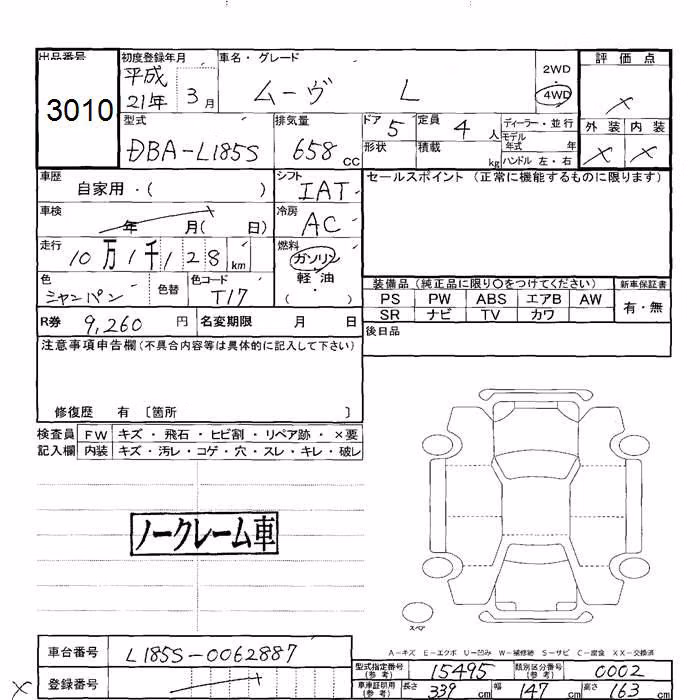 出品番号
3010
初度登録年月
平成
21年 3月
車名・グレード
ムーヴ L
2WD
・
4WD
評価点
×
外装 内装
× ×
型式
DBA-L185S
排気量
658 cc
ドア 5
定員 4 人
形状
積載 kg
ディーラー・並行
モデル年式 年
ハンドル 左・右
車歴
自家用・( )
シフト
IAT
セールスポイント (正常に機能するものに限ります)
車検
年 月( 日)
冷房
AC
走行
10万1千128 km
燃料
ガソリン
軽・油
( ・ )
色
シャンパン
色替
色コード
T17
装備品 (純正品に限り○をつけてください)
新車保証書
PS PW ABS エアB AW
有・無
SR ナビ TV カワ
R券 9,260 円
名変期限 月 日
後日品
注意事項申告欄 (不具合内容等は具体的に記入して下さい)
修復歴 有 〔箇所 〕
検査員
記入欄
FW キズ・飛石・ヒビ割・リペア跡・×要
内装 キズ・汚レ・コゲ・穴・スレ・キレ・破レ
ノークレーム車
スペア
A－キズ E－エクボ U－凹み W－補修跡 S－サビ C－腐食 XX－交換済
車台番号 L185S-0062887
型式指定番号
(参考)
15495
類別区分番号
(参考)
0002
登録番号
×
車車証明用
(参考)
長さ 339 cm 幅 147 cm 高さ 163 cm